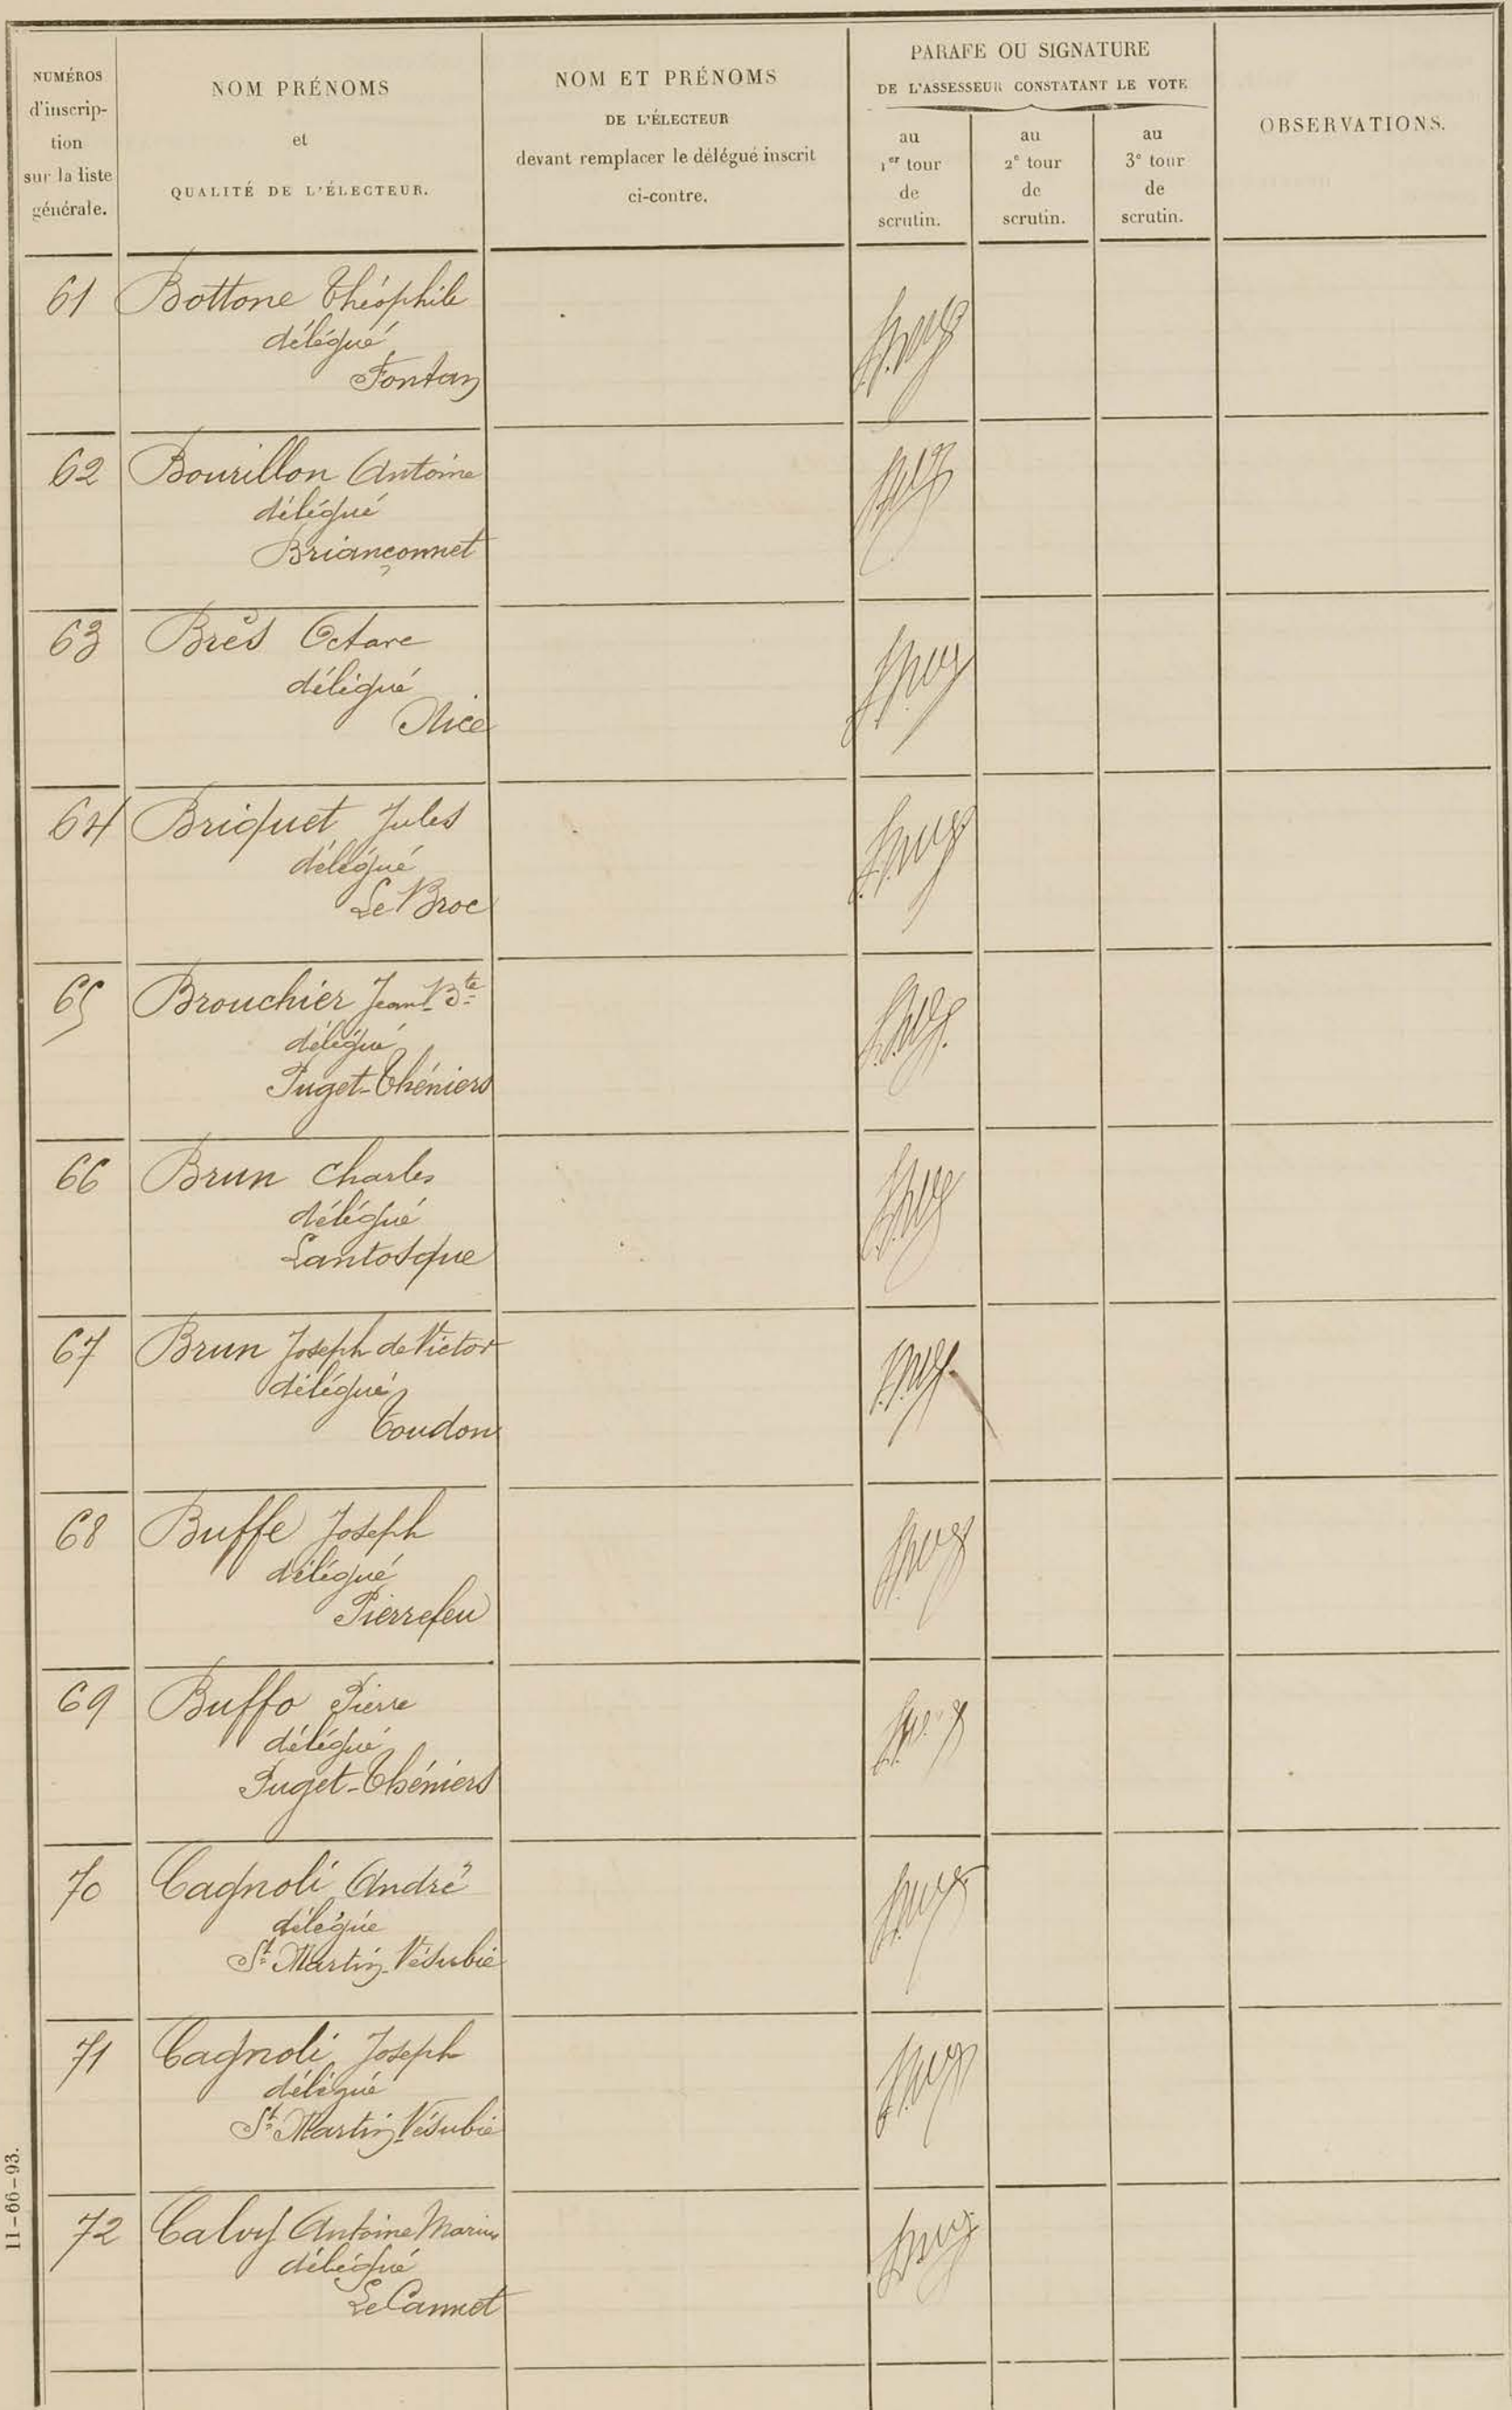 NUMÉROS
d'inscrip-
tion
sur la liste
générale.
NOM PRÉNOMS
et
QUALITÉ DE L'ÉLECTEUR.
NOM ET PRÉNOMS
DE L'ÉLECTEUR
devant remplacer le délégué inscrit
ci-contre.
PARAFE OU SIGNATURE
DE L'ASSESSEUR CONSTATANT LE VOTE
au
1er tour
de
scrutin.
au
2e tour
de
scrutin.
au
3e tour
de
scrutin.
OBSERVATIONS.
61 Bottone Théophile
délégué
Fontan
62 Bourillon Antoine
délégué
Briançonnet
63 Brès Octave
délégué
Nice
64 Briquet Jules
délégué
Le Broc
65 Brouchier Jean Bte
délégué
Puget-Théniers
66 Brun Charles
délégué
Lantosque
67 Brun Joseph de Victor
délégué
Toudon
68 Buffe Joseph
délégué
Pierrefeu
69 Buffo Pierre
délégué
Puget-Théniers
70 Cagnoli André
délégué
St Martin-Vésubie
71 Cagnoli Joseph
délégué
St Martin-Vésubie
72 Calvy Antoine Marius
délégué
Le Cannet
11-66-93.